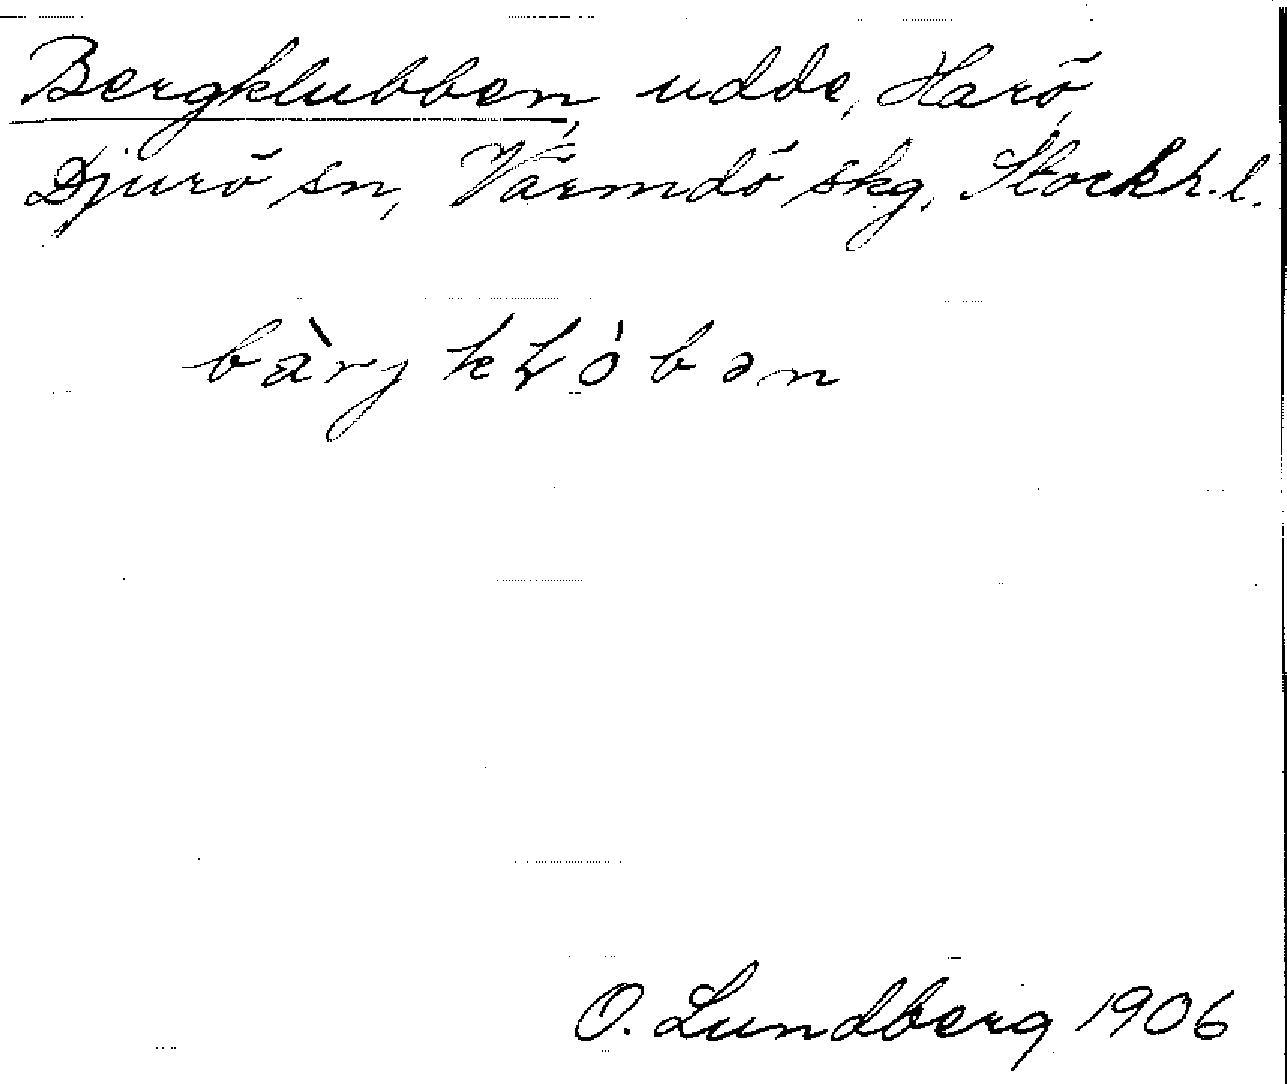 Bergklubben, udde, Harö,
Djurö sn, Värmdö skg, Stockh. l.
bàrjkłóbən
O. Lundberg 1906